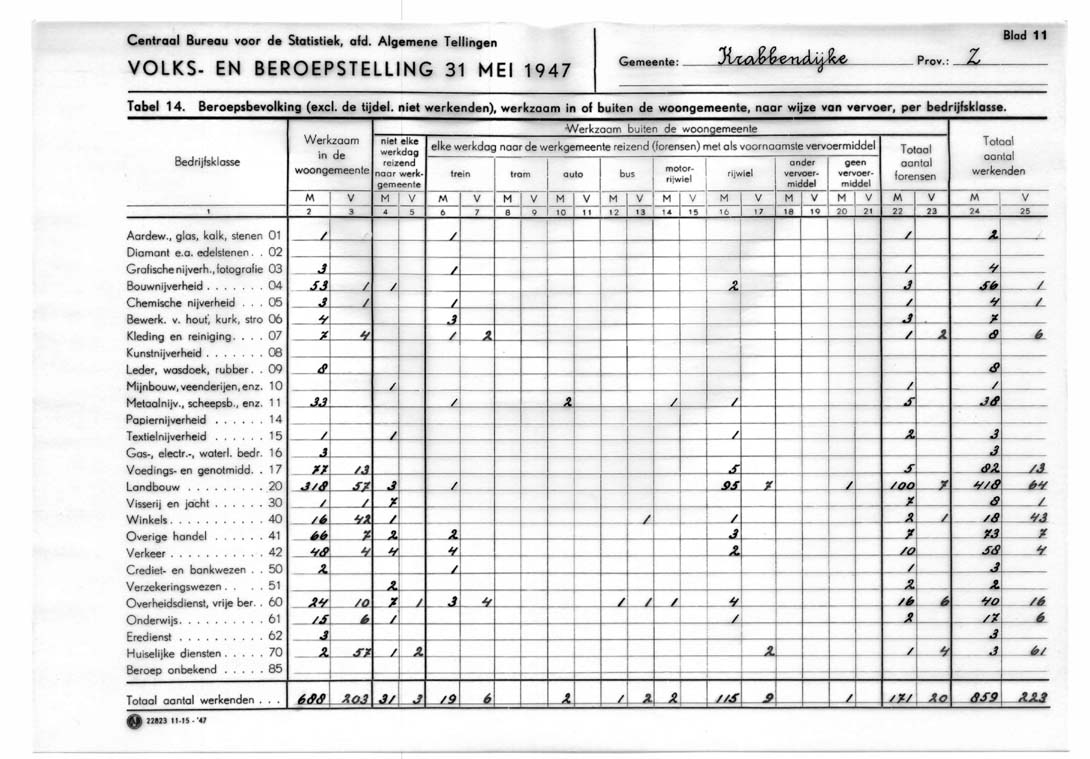 Centraal Bureau voor de Statistiek, afd. Algemene Tellingen
Blad 11
VOLKS- EN BEROEPSTELLING 31 MEI 1947
Gemeente: Krabbendijke Prov.: Z
Tabel 14. Beroepsbevolking (excl. de tijdel. niet werkenden), werkzaam in of buiten de woongemeente, naar wijze van vervoer, per bedrijfsklasse.
Bedrijfsklasse
Werkzaam in de woongemeente
Werkzaam buiten de woongemeente
niet elke werkdag reizend naar werk-gemeente
elke werkdag naar de werkgemeente reizend (forensen) met als voornaamste vervoermiddel
trein tram auto bus motor-rijwiel rijwiel ander vervoer-middel geen vervoer-middel
Totaal aantal forensen
Totaal aantal werkenden
M V M V M V M V M V M V M V M V M V M V M V M V
1 2 3 4 5 6 7 8 9 10 11 12 13 14 15 16 17 18 19 20 21 22 23 24 25
Aardew., glas, kalk, stenen 01 1 1 1 2
Diamant e.a. edelstenen . . 02
Grafische nijverh., fotografie 03 3 1 1 4
Bouwnijverheid . . . . . . . 04 53 1 1 2 3 56 1
Chemische nijverheid . . . 05 3 1 1 1 4 1
Bewerk. v. hout, kurk, stro 06 4 3 3 7
Kleding en reiniging. . . . 07 7 4 1 2 1 2 8 6
Kunstnijverheid . . . . . . . 08
Leder, wasdoek, rubber. . 09 8 8
Mijnbouw, veenderijen, enz. 10 1 1 1
Metaalnijv., scheepsb., enz. 11 33 1 2 1 1 5 38
Papiernijverheid . . . . . . 14
Textielnijverheid . . . . . . 15 1 1 1 2 3
Gas-, electr.-, waterl. bedr. 16 3 3
Voedings- en genotmidd. . 17 77 13 5 5 82 13
Landbouw . . . . . . . . . 20 318 57 3 1 95 7 1 100 7 418 64
Visserij en jacht . . . . . . 30 1 1 7 7 8 1
Winkels . . . . . . . . . . . 40 16 42 1 1 1 2 1 18 43
Overige handel . . . . . . 41 66 7 2 2 3 7 73 7
Verkeer . . . . . . . . . . . 42 48 4 4 4 2 10 58 4
Crediet- en bankwezen . . 50 2 1 1 3
Verzekeringswezen . . . . 51 2 2 2
Overheidsdienst, vrije ber. . 60 24 10 7 1 3 4 1 1 1 4 16 6 40 16
Onderwijs. . . . . . . . . . 61 15 6 1 1 2 17 6
Eredienst . . . . . . . . . . 62 3 3
Huiselijke diensten . . . . . 70 2 57 1 2 2 1 4 3 61
Beroep onbekend . . . . . 85
Totaal aantal werkenden . . . 688 203 31 3 19 6 2 1 2 2 115 9 1 171 20 859 223
22823 11-15 - '47